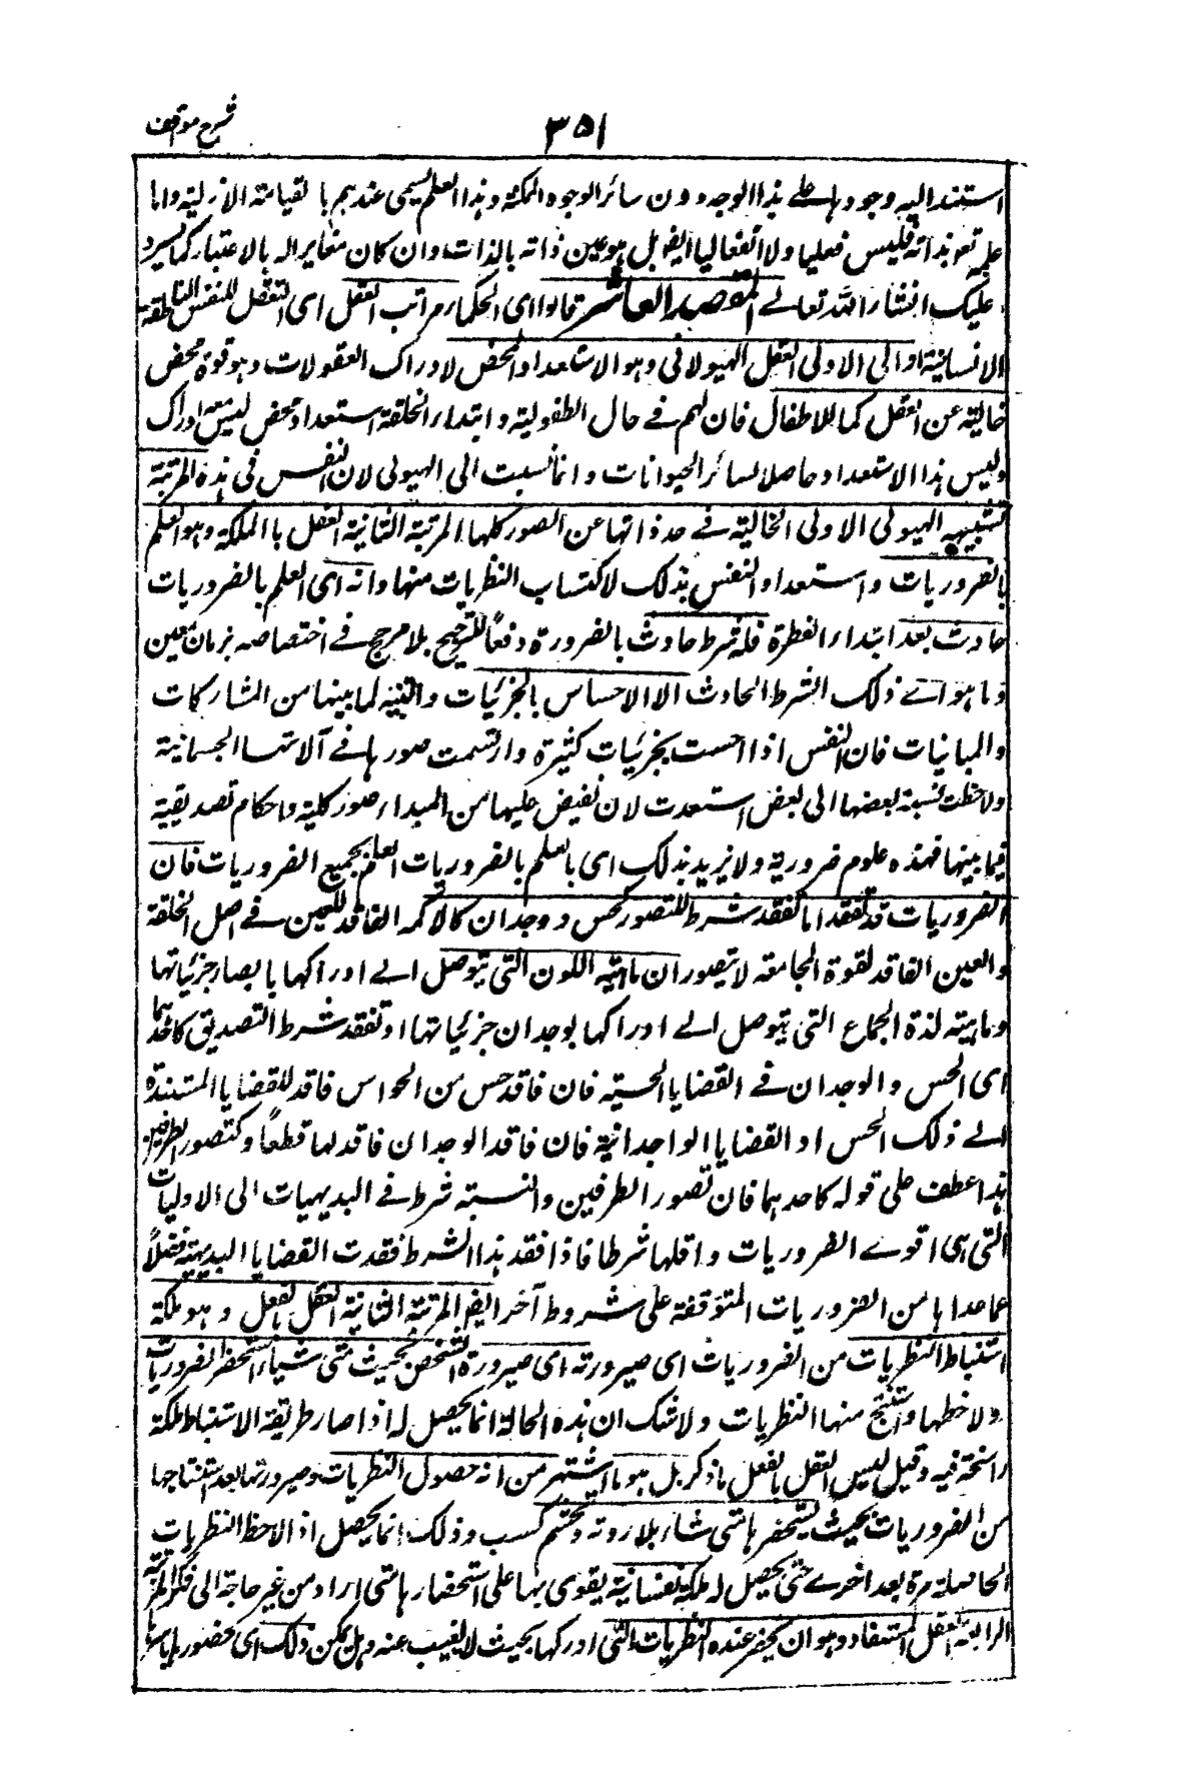 شرح مواقف
٣٥١
استند اليه وجودها على هذا الوجه دون سائر الوجوه الممكنة وهذا العلم يسمى عندهم بالعناية الازلية واما
علمه تعالى بذاته فليس فعليا ولا انفعاليا ايضا بل هو عين ذاته بالذات وان كان مغايرا له بالاعتبار كما سيرد
عليك انشاء الله تعالى المقصد العاشر قالوا اى الحكماء مراتب العقل اى التعقل للنفس الناطقة
الانسانية اربع الاولى العقل الهيولانى وهو الاستعداد المحض لادراك المعقولات وهو قوة محض
خالية عن الفعل كما للاطفال فان لهم فى حال الطفولية وابتداء الخلقة استعداد محض ليس معه ادراك
وليس هذا الاستعداد حاصلا لسائر الحيوانات وانما نسبت الى الهيولى لان النفس فى هذه المرتبة
تشبه الهيولى الاولى الخالية فى حد ذاتها عن الصور كلها المرتبة الثانية العقل بالملكة وهو العلم
بالضروريات واستعداد النفس بذلك لاكتساب النظريات منها وانه اى العلم بالضروريات
حادث بعد ابتداء الفطرة فله شرط حادث بالضرورة دفعًا للترجيح بلا مرجح فى اختصاصه بزمان معين
وما هو اى ذلك الشرط الحادث الا الاحساس بالجزئيات والتنبه لما بينها من المشاركات
والمباينات فان النفس اذا احست بجزئيات كثيرة وارتسمت صورها فى آلاتها الجسمانية
ولاحظت نسبة بعضها الى بعض استعدت لان تفيض عليها من المبداء صور كلية واحكام تصديقية
فيما بينها فهذه علوم ضرورية ولا نريد بذلك اى بالعلم بالضروريات العلم بجميع الضروريات فان
الضروريات قد تفقد اما لفقد شرط للتصور كحس و وجدان كالاكمه الفاقد للعين فى اصل الخلقة
والعين الفاقد لقوة المجامعة لا يتصوران ماهية اللون التى يتوصل الى ادراكها بابصار جزئياتها
وماهية لذة الجماع التى يتوصل الى ادراكها بوجدان جزئياتها او لفقد شرط التصديق كاحدهما
اى الحس والوجدان فى القضايا الحسية فان فاقد حس من الحواس فاقد للقضايا المستندة
الى ذلك الحس او القضايا الواجدانية فان فاقد الوجدان فاقد لها قطعاً وكتصور الطرفين
هذا عطف على قوله كاحدهما فان تصور الطرفين والنسبة شرط فى البديهيات اى الاوليات
التى هى اقوى الضروريات واقلها شرطا فاذا فقد هذا الشرط فقدت القضايا البديهية فضلاً
عما عداها من الضروريات المتوقفة على شروط آخر ايضا المرتبة الثانية العقل بالفعل وهو ملكة
استنباط النظريات من الضروريات اى صيرورته اى صيرورة الشخص بحيث متى شاء استحضر الضروريات
ولاحظها واستنتج منها النظريات ولا شك ان هذه الحالة انما يحصل له اذا صار طريقة الاستنباط ملكة
راسخة فيه وقيل ليس العقل بالفعل ما ذكر بل هو ما اشتهر من انه حصول النظريات وصيرورتها بعد استنتاجها
من الضروريات بحيث يستحضرها متى شاء بلا روية وتجشم كسب وذلك انما يحصل اذا لاحظ النظريات
الحاصلة مرة بعد اخرى حتى يحصل له ملكة نفسانية يقوى بها على استحضارها متى اراد من غير حاجة الى فكر المرتبة
الرابعة العقل المستفاد وهو ان يحضر عنده النظريات التى ادركها بحيث لا يغيب عنه وهل يمكن ذلك اى حضورها